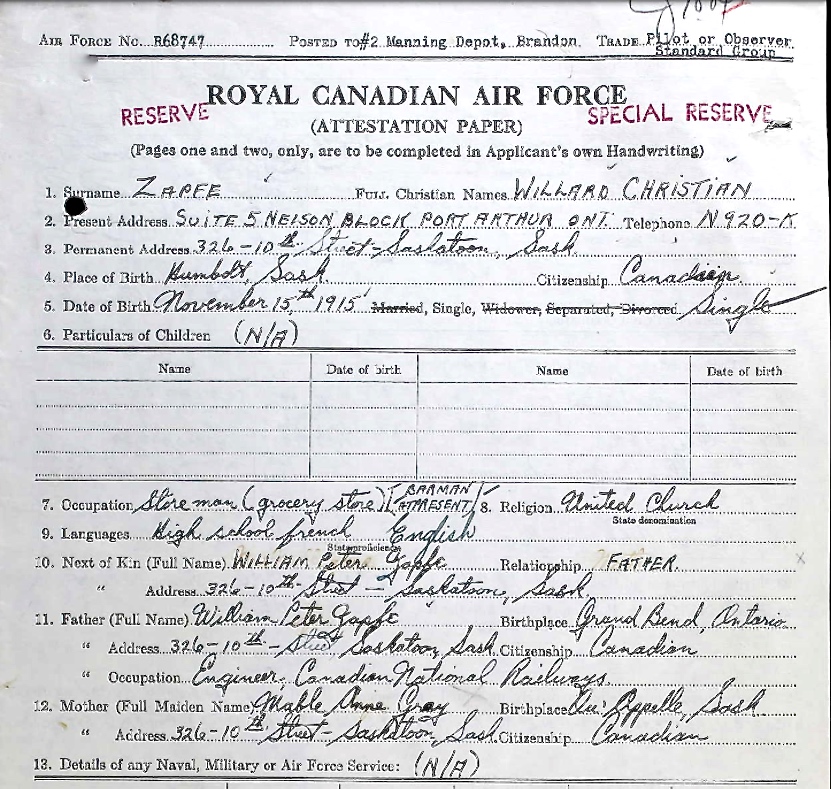 AIR FORCE No. R68747 POSTED TO #2 Manning Depot, Brandon. TRADE Pilot or Observer
Standard Group
ROYAL CANADIAN AIR FORCE
RESERVE SPECIAL RESERVE
(ATTESTATION PAPER)
(Pages one and two, only, are to be completed in Applicant's own Handwriting)
1. Surname ZAPFE FULL Christian Names WILLARD CHRISTIAN
2. Present Address SUITE 5 NELSON BLOCK PORT ARTHUR ONT. Telephone N 920-K
3. Permanent Address 326-10th Street-Saskatoon, Sask.
4. Place of Birth Humbolt, Sask. Citizenship Canadian.
5. Date of Birth November 15th 1915 Married, Single, Widower, Separated, Divorced Single
6. Particulars of Children (N/A)
Name Date of birth Name Date of birth
7. Occupation Store man (grocery store) (BARMAN AT PRESENT) 8. Religion United Church
State denomination
9. Languages High school french English
State proficiency
10. Next of Kin (Full Name) WILLIAM Peter Zapfe Relationship FATHER.
" Address 326-10th Street - Saskatoon, Sask.
11. Father (Full Name) William Peter Zapfe Birthplace Grand Bend, Ontario
" Address 326-10th-Street Saskatoon, Sask. Citizenship Canadian
" Occupation Engineer, Canadian National Railways.
12. Mother (Full Maiden Name) Mable Anne Gray Birthplace Qu'Appelle, Sask.
" Address 326-10th Street-Saskatoon, Sask. Citizenship Canadian
13. Details of any Naval, Military or Air Force Service: (N/A)